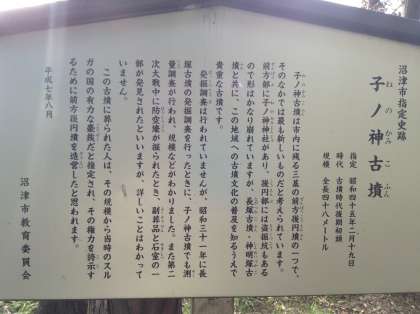 沼津市指定史跡
子ノ神古墳
ね かみ こ ふん
指定 昭和四十五年二月十九日
時代 古墳時代後期初頭
規模 全長四十八メートル
子ノ神古墳は市内に残る三基の前方後円墳の一つで、
そのなかでは最も新しいものだと考えられています。
前方部に子ノ神神社があり、後円部には盗掘坑もある
ので形はかなり崩れていますが、長塚古墳・神明塚古
墳と共に、この地域への古墳文化の普及を知るうえで
貴重な古墳です。
発掘調査は行われていませんが、昭和三十一年に長
塚古墳の発掘調査を行ったときに、子ノ神古墳でも測
量調査が行われ、規模などがわかりました。また第二
次大戦中に防空壕が掘られたとき、副葬品と石室の一
部が発見されたといいますが、詳しいことはわかって
いません。
この古墳に葬られた人は、その規模から当時のスル
ガの国の有力な豪族だと推定され、その権力を誇示す
るために前方後円墳を造営したと思われます。
平成七年八月
沼津市教育委員会